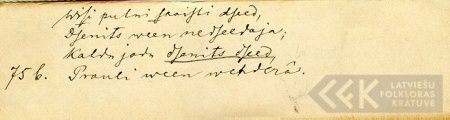 Wisi putni skaisti dseed,
Dsenits ween nedseedaja;
Kaldu jadu dsenits dseed,
756. Prauli ween wehderâ.
LATVIEŠU
FOLKLORAS
KRĀTUVE